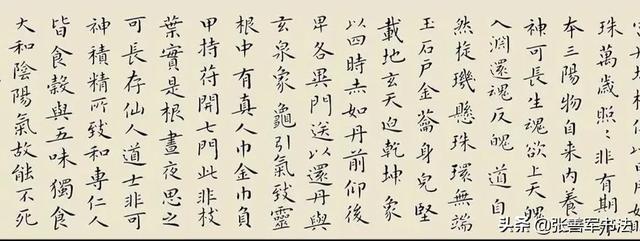 珠萬歲照〻非有期外
本三陽物自来内養
神可長生魂欲上天魄
入淵還魂反魄道自
然旋璣懸珠環無端
玉石戶金籥身完堅
載地玄天迫乾坤象
以四時赤如丹前仰後
卑各異門送以還丹與
玄泉象龜引氣致靈
根中有真人巾金巾負
甲持苻開七門此非枝
葉實是根晝夜思之
可長存仙人道士非可
神積精所致和專仁人
皆食穀與五味獨食
大和陰陽氣故能不死
头条 @张善军书法